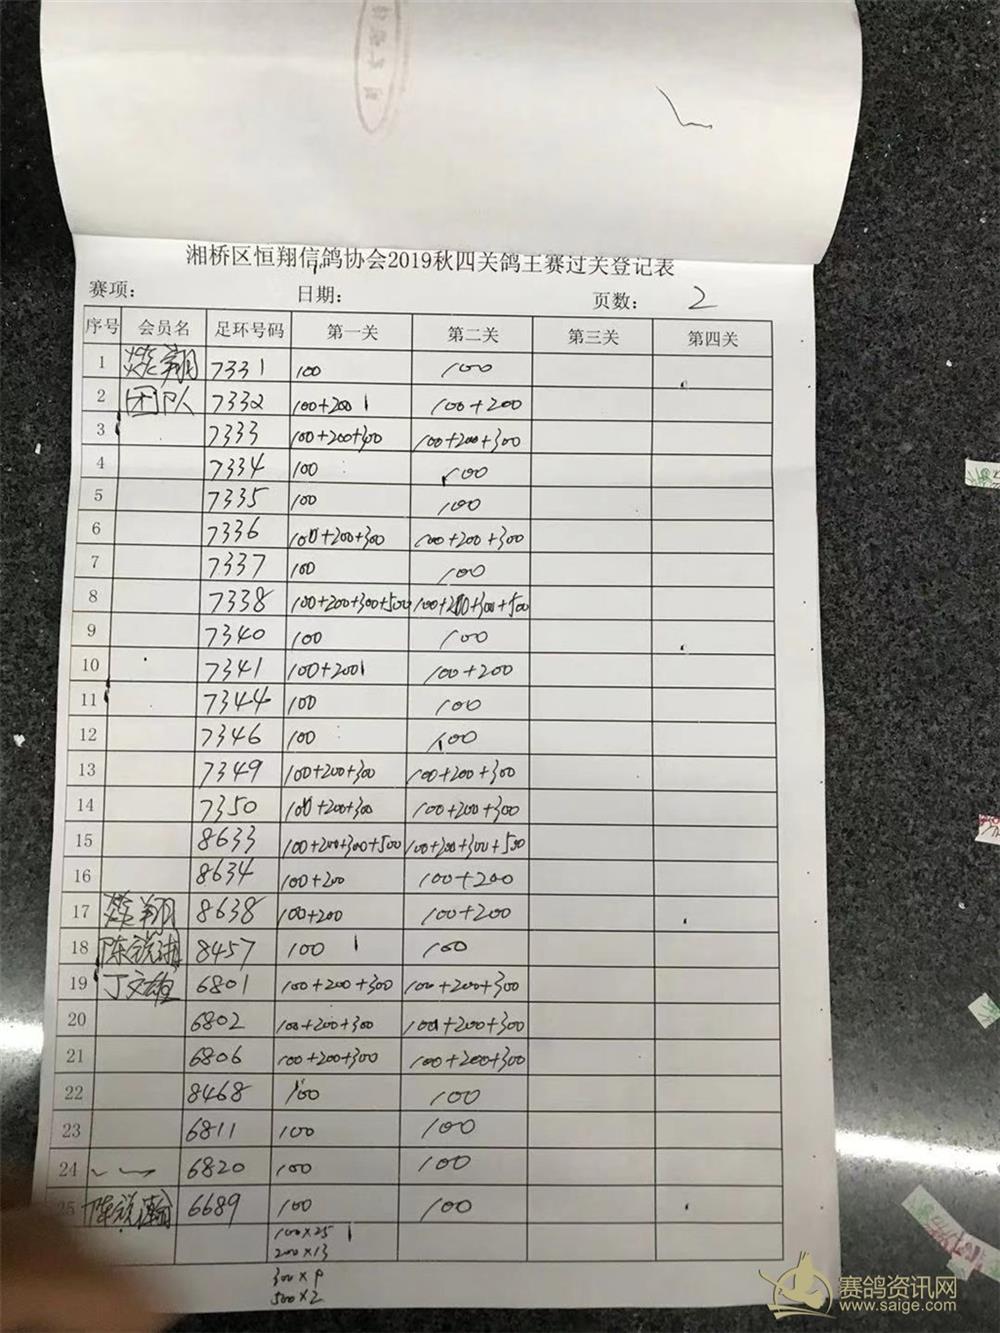 湘桥区恒翔信鸽协会2019秋四关鸽王赛过关登记表
赛项: 日期: 页数: 2
序号 会员名 足环号码 第一关 第二关 第三关 第四关
1 燚翔 7331 100 100
2 团队 7332 100+200 100+200
3 7333 100+200+300 100+200+300
4 7334 100 100
5 7335 100 100
6 7336 100+200+300 100+200+300
7 7337 100 100
8 7338 100+200+300+500 100+200+300+500
9 7340 100 100
10 7341 100+200 100+200
11 7344 100 100
12 7346 100 100
13 7349 100+200+300 100+200+300
14 7350 100+200+300 100+200+300
15 8633 100+200+300+500 100+200+300+500
16 8634 100+200 100+200
17 燚翔 8638 100+200 100+200
18 陈锐 8457 100 100
19 丁文雄 6801 100+200+300 100+200+300
20 6802 100+200+300 100+200+300
21 6806 100+200+300 100+200+300
22 8468 100 100
23 6811 100 100
24 6820 100 100
25 陈锐瀚 6689 100 100
100×25
200×13
300×9
500×2
赛鸽资讯网
www.saige.com